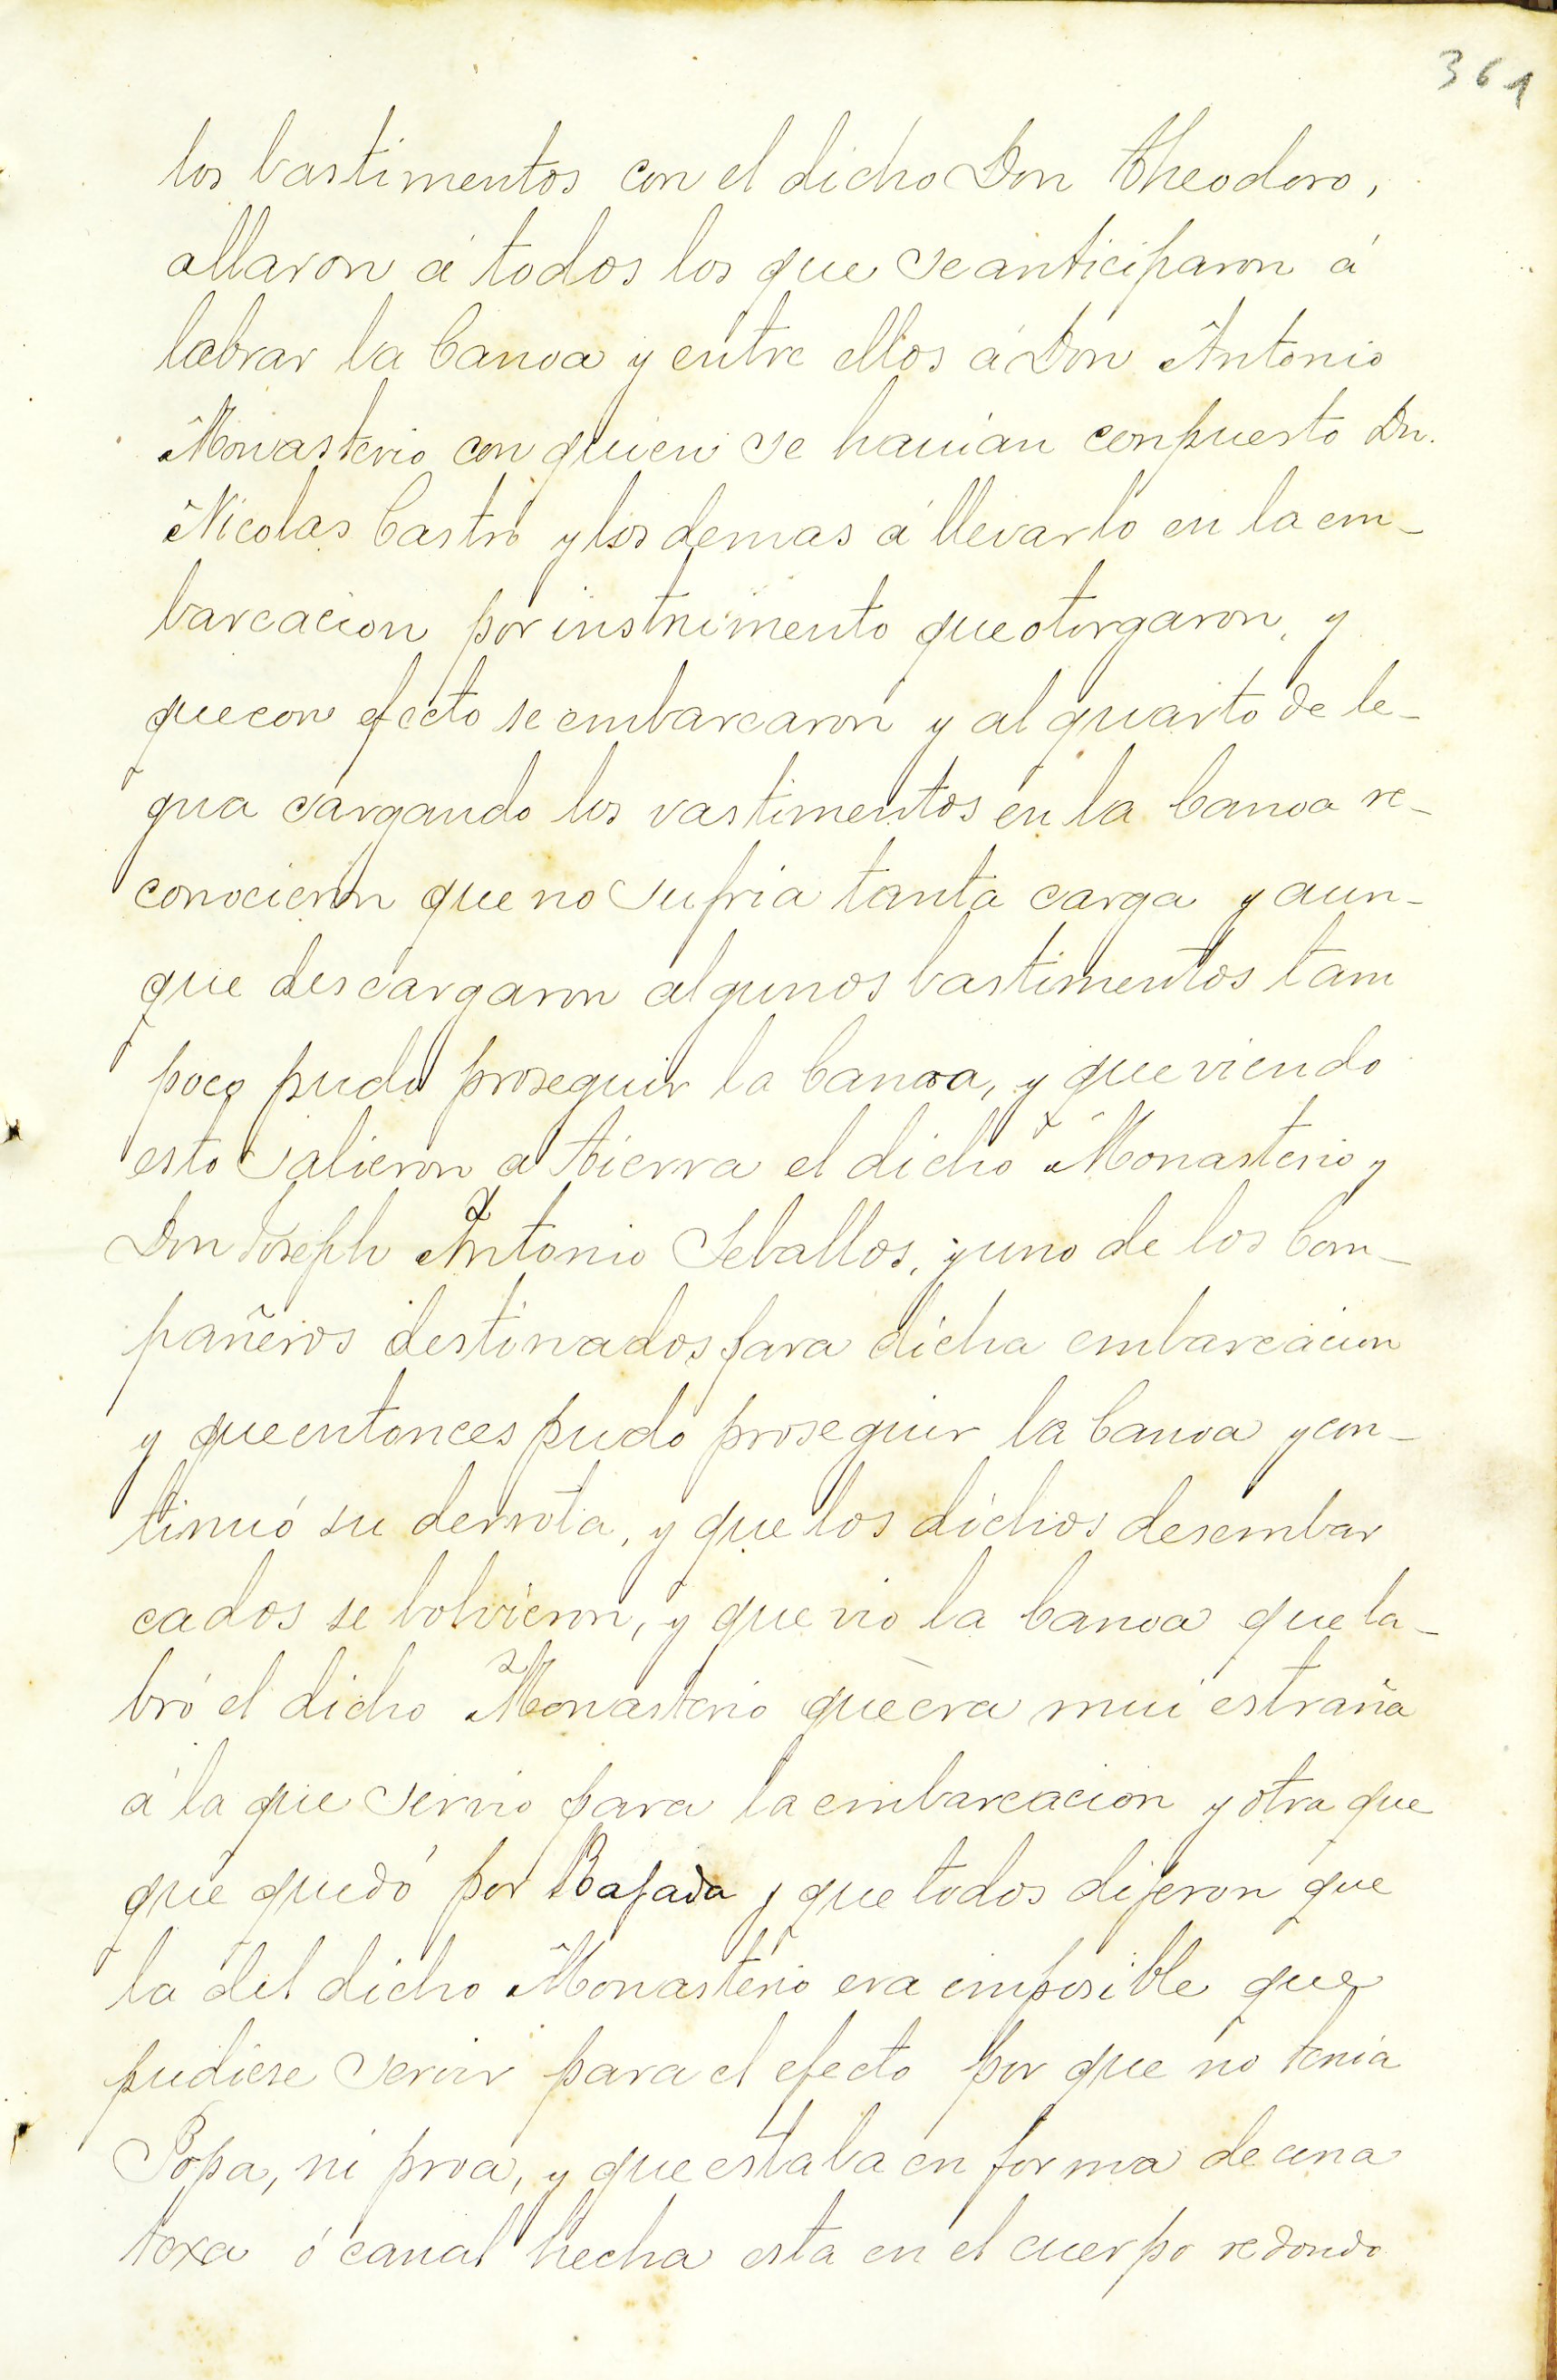 361
los bastimentos con el dicho Don Theodoro,
allaron á todos los que se anticiparon á
labrar la Canoa y entre ellos á Don Antonio
Monasterio con quien se hauian conpuesto Dn.
Nicolas Castro y los demas á llevarlo en la em-
barcacion por instrumento que otorgaron, y
que con efecto se embarcaron y al quarto de le-
gua cargando los vastimentos en la Canoa re-
conocieron que no sufria tanta carga y aun-
que descargaron algunos bastimentos tam
poco pudo proseguir la Canoa, y que viendo
esto salieron a tierra el dicho Monasterio y
Don Joseph Antonio Seballos, y uno de los Com-
pañeros destinados para dicha embarcacion
y que entonces pudo proseguir la Canoa y con-
tinuó su derrota, y que los dichos desembar
cados se bolvieron, y que vio la Canoa que la-
bró el dicho Monasterio que era mui estraña
á la que sirvio para la embarcacion y otra que
que quedó por Bajada y que todos dijeron que
la del dicho Monasterio era imposible que
pudiese servir para el efecto por que no tenia
Popa, ni proa, y que estaba en forma de una
texa ó canal hecha esta en el cuerpo redondo